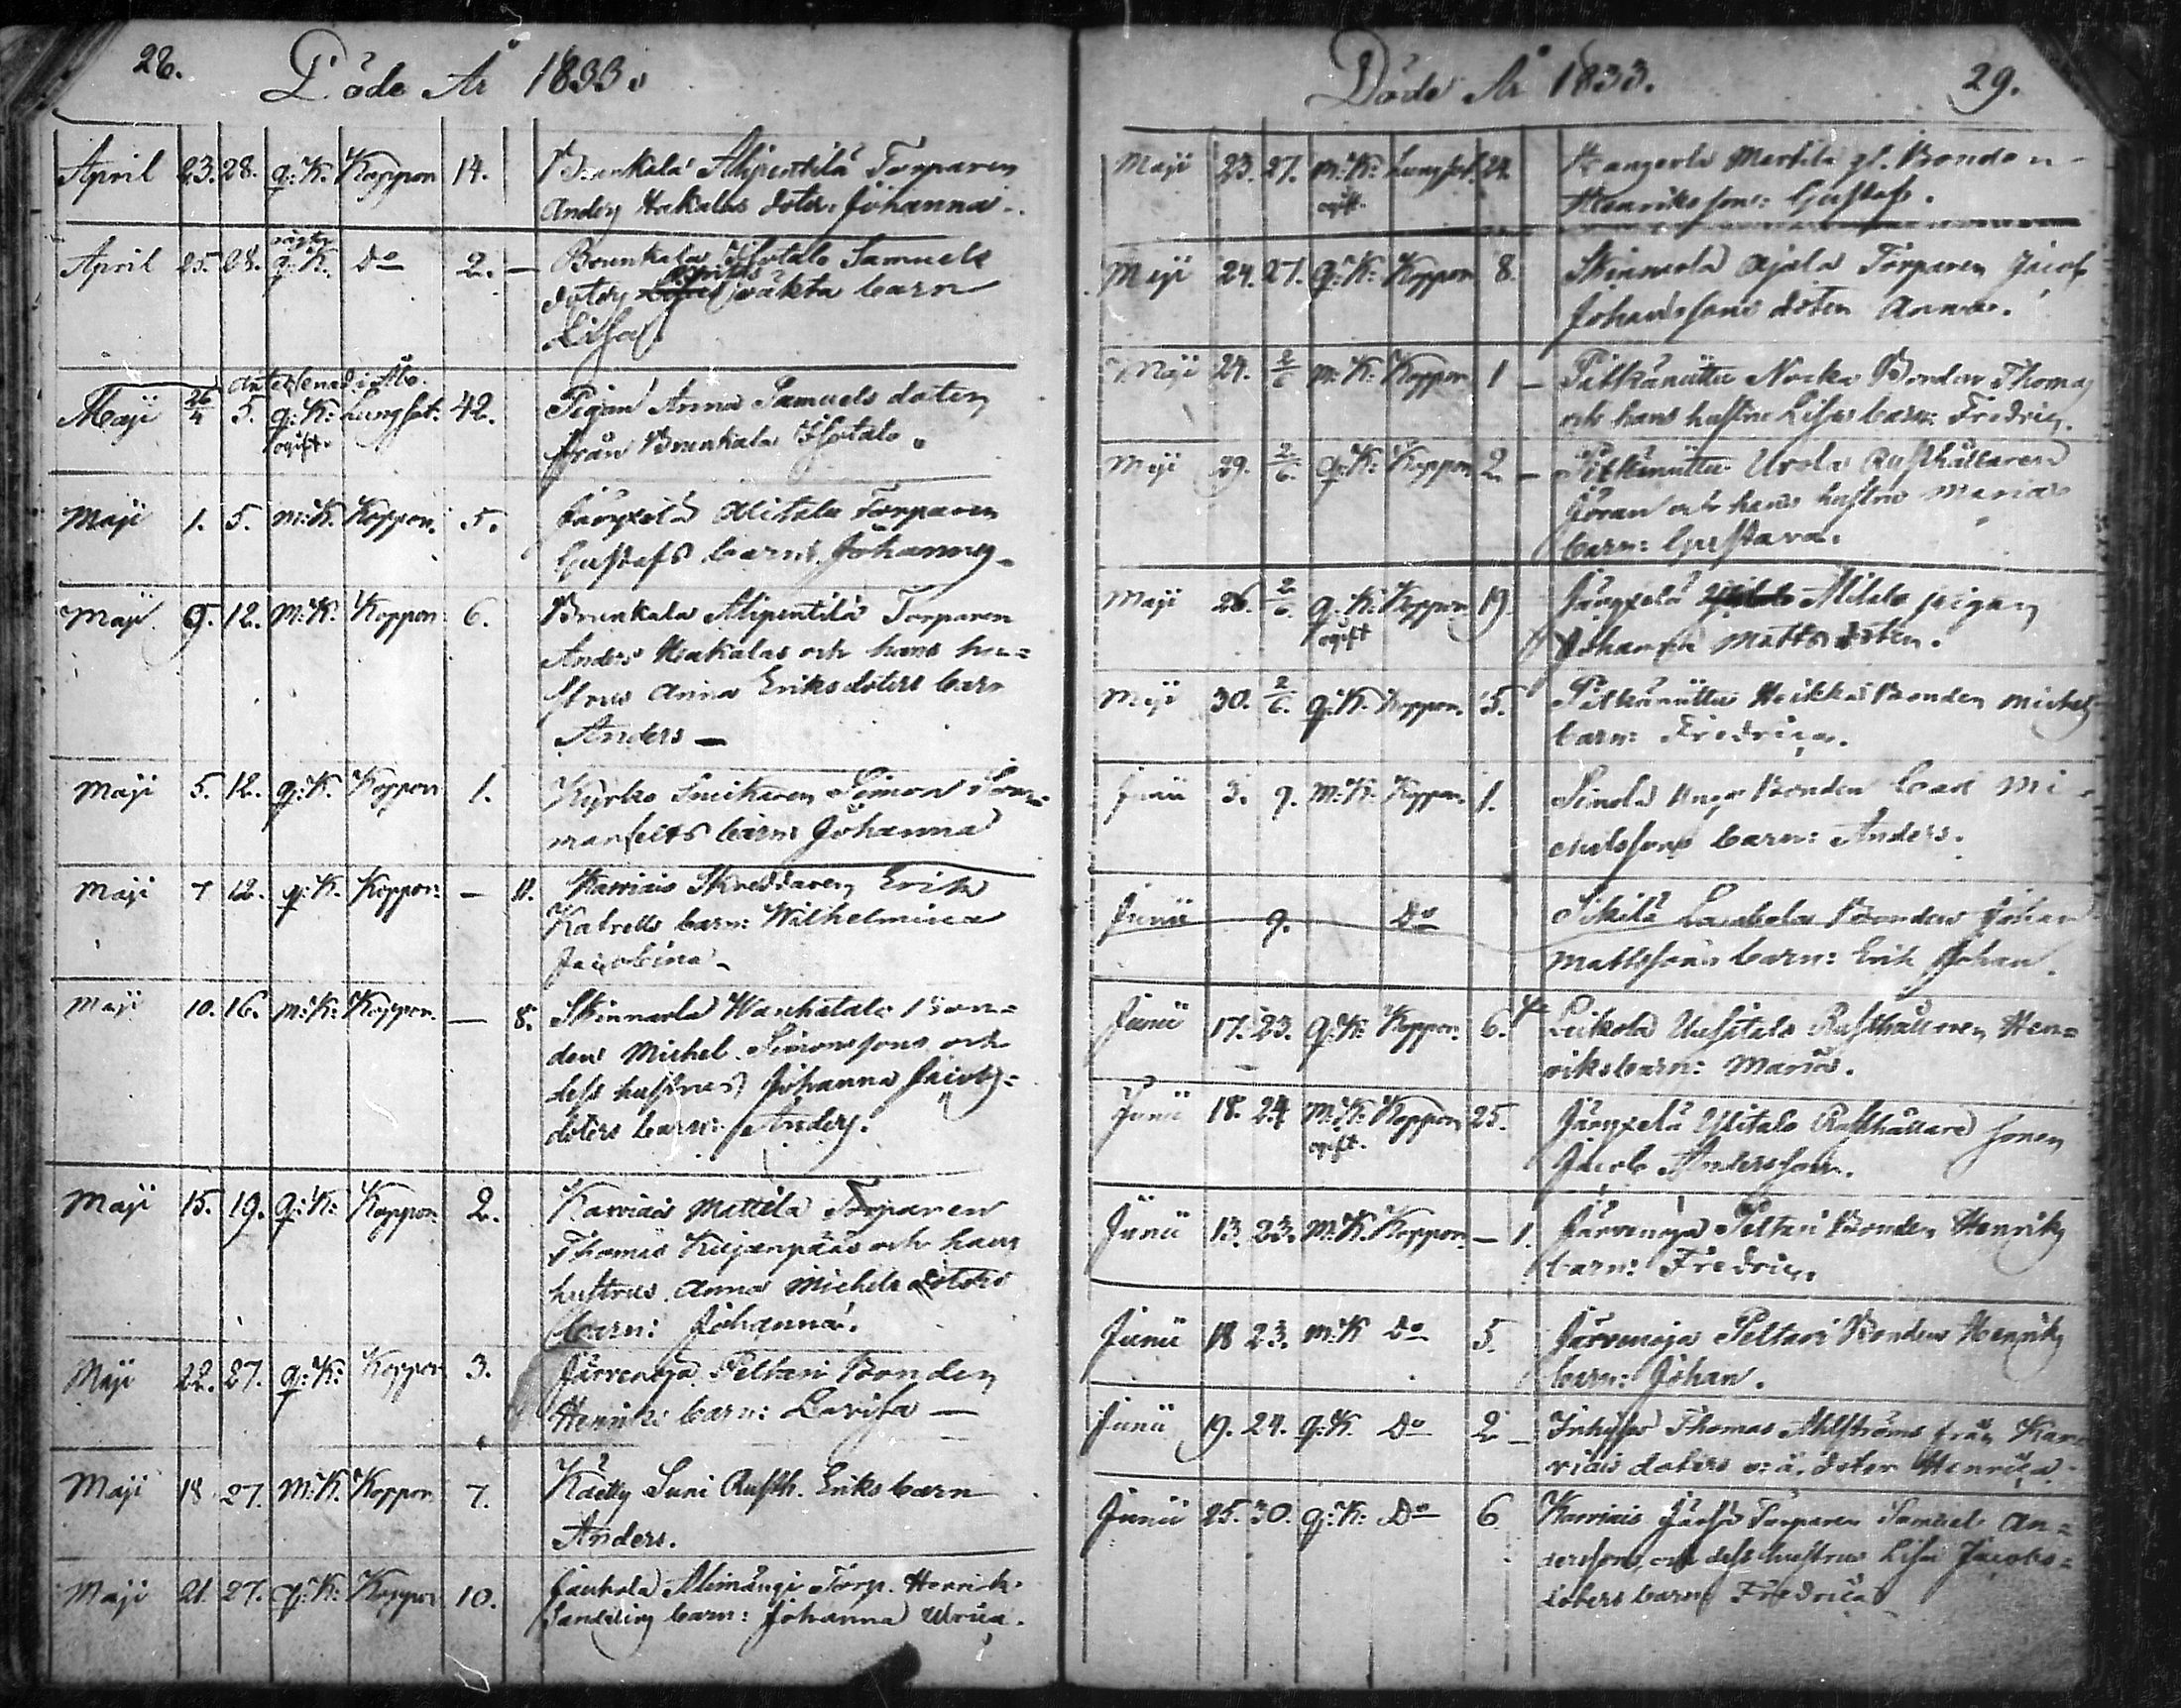 28.
Döde År 1833.
April 23. 28. q:K. Koppor 14. Brunkala Alipentilä Torparen
Anders Hakalas doter: Johanna.
April 25. 28. q:K. Do 2. — Brunkala Isotalo Samuels
doters oäkta barn
Lisa.
Maji 26/4 5. q:K: Lungsot. 42. Pigan Anna Samuels doter
ogift. från Brunkala Isotalo.
Maji 1. 5. m:K. Koppor. 5. Alitalo Torparen
Gustafs barn: Johannes.
Maji 9. 12. M:K. Koppor 6. Brunkala Alipentilä Torparen
Anders Hakalas och hans hu=
strus Anna Eriksdoters barn
Anders —
Maji 5. 12. q:K. Koppor 1. Kyrko Snickaren Simon
barn: Johanna
Maji 7 12. q:K. Koppor. — 11. Karviais Skreddaren Erik
barn: Wilhelmina
Jacobina.
Maji 10. 16. m:K: Koppor. — 8. Skinnarla Wanhatalo Bon=
den Michel Simonssons och
dess hustrus Johanna Jacobs=
doters barn: Anders.
Maji 15. 19. q:K: Koppor. 2. Karviais Mattila Torparen
Thomas Kujanpääs och hans
hustrus Anna Michels doters
barn: Johanna.
Maji 22. 27. q:K: Koppor 3. Järvenoja Peltari Bonden
Henriks barn: Lovisa —
Maji 18. 27. M:K. Koppor. 7. Suni Rusth. Eriks barn
Anders.
Maji 21. 27. q:K: Koppor 10. Torp. Henrik
barn: Johanna Ulrica.
Döde År 1833.
29.
Maji 23. 27. m:K: Lungsot. Mertila gl. Bonden
ogift. Henriksson: Gustaf.
Maji 24. 27. q:K: Koppor 8. Skinnarla Ojala Torparen Jacob
Johanssons doter Anna.
Maji 24. 2/6 m:K: Koppor 1 — Pitkäniittu Bonden Thomas
och hans hustru Lisas barn: Fredric.
Maji 29. 2/6. q:K: Koppor 2 — Pitkäniittu Urola Rusthållaren
Göran och hans hustru Marias
barn: Gustava.
Maji 26. 2/6. q:K: Koppor 19. Alitalo pigan
ogift Johanna Mattsdoter.
Maji 30. 2/6. q:K. Koppor. 5. Pitkäniittu Heikkä Bonden Michels
barn: Fredrica.
Junii 3. 9. M:K. Koppor. 1. Bonden Carl Mi=
chelssons barn: Anders.
Junii 9. Do Bonden Johan
Mattssons barn: Erik Johan.
Junii 17. 23. q:K: Koppor. 6. Uusitalo Rusthållaren Hen=
riks barn: Maria.
Junii 18. 24 M:K: Koppor 25. Ylitalo Rusthållare sonen
ogift. Jacob Andersson.
Junii 13. 23. M:K. Koppor. — 1. Järvenoja Peltari Bonden Henriks
barn: Fredric.
Junii 18 23. m:K Do 5. Järvenoja Peltari Bonden Henriks
barn: Johan.
Junii 19. 24. q:K Do 2 — Inhyses Thomas Ahlströms från Kar=
viais doters o:ä. doter Henrica.
Junii 25. 30. q:K: Do 6 Karviais Torparen Samuel An=
derssons och dess hustrus Lisa Jacobs=
doters barn: Fredrica